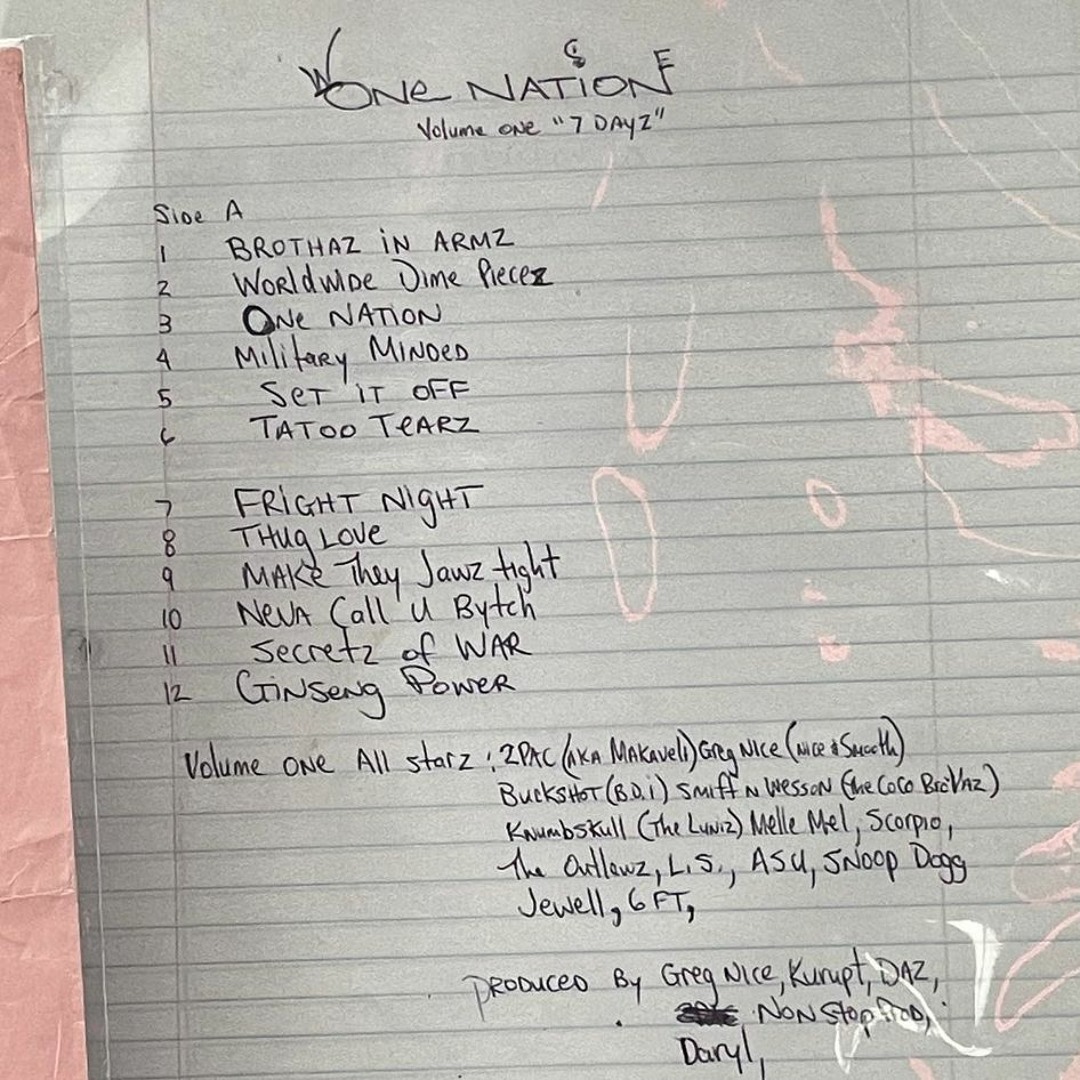 ONE NATION
Volume ONE "7 DAYZ"
Side A
1 BROTHAZ iN ARMZ
2 WorldWide Dime Piecez
3 ONe NATION
4 Military MINDED
5 SeT iT OFF
6 TATOO TeARZ
7 FRiGHT NigHT
8 THug LOVe
9 MAKe They Jawz tight
10 NevA Call U Bytch
11 Secretz of WAR
12 GiNSeng Power
Volume ONE All starz : 2PAC (AKA MAKAveli) Greg Nice (Nice & Smooth)
BuckSHOT (B.D.i) Smiff N WessoN (the CoCo BroVAz)
Knumbskull (The Luniz) Melle Mel, Scorpio,
The Outlawz, L.S., ASU, SNoop Dogg
Jewell, 6 FT,
PRODUCED By Greg Nice, Kurupt, DAZ,
NON Stop PROD,
Daryl,